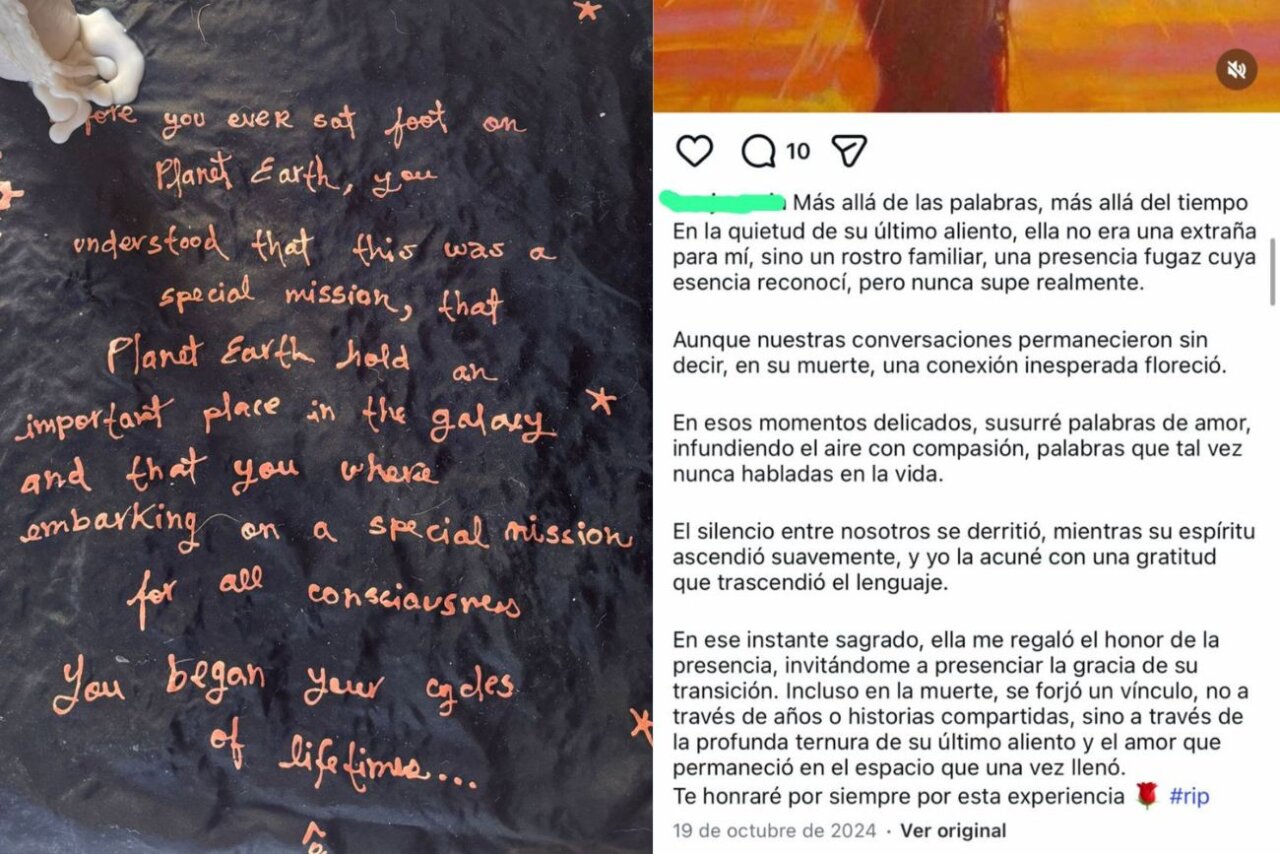 fore you ever sat foot on
Planet Earth, you
understood that this was a
special mission, that
Planet Earth hold an
important place in the galaxy
and that you where
embarking on a special mission
for all consciausness
You began your cycles
of lifetimes...
10
Más allá de las palabras, más allá del tiempo
En la quietud de su último aliento, ella no era una extraña
para mí, sino un rostro familiar, una presencia fugaz cuya
esencia reconocí, pero nunca supe realmente.
Aunque nuestras conversaciones permanecieron sin
decir, en su muerte, una conexión inesperada floreció.
En esos momentos delicados, susurré palabras de amor,
infundiendo el aire con compasión, palabras que tal vez
nunca habladas en la vida.
El silencio entre nosotros se derritió, mientras su espíritu
ascendió suavemente, y yo la acuné con una gratitud
que trascendió el lenguaje.
En ese instante sagrado, ella me regaló el honor de la
presencia, invitándome a presenciar la gracia de su
transición. Incluso en la muerte, se forjó un vínculo, no a
través de años o historias compartidas, sino a través de
la profunda ternura de su último aliento y el amor que
permaneció en el espacio que una vez llenó.
Te honraré por siempre por esta experiencia 🌹 #rip
19 de octubre de 2024 · Ver original